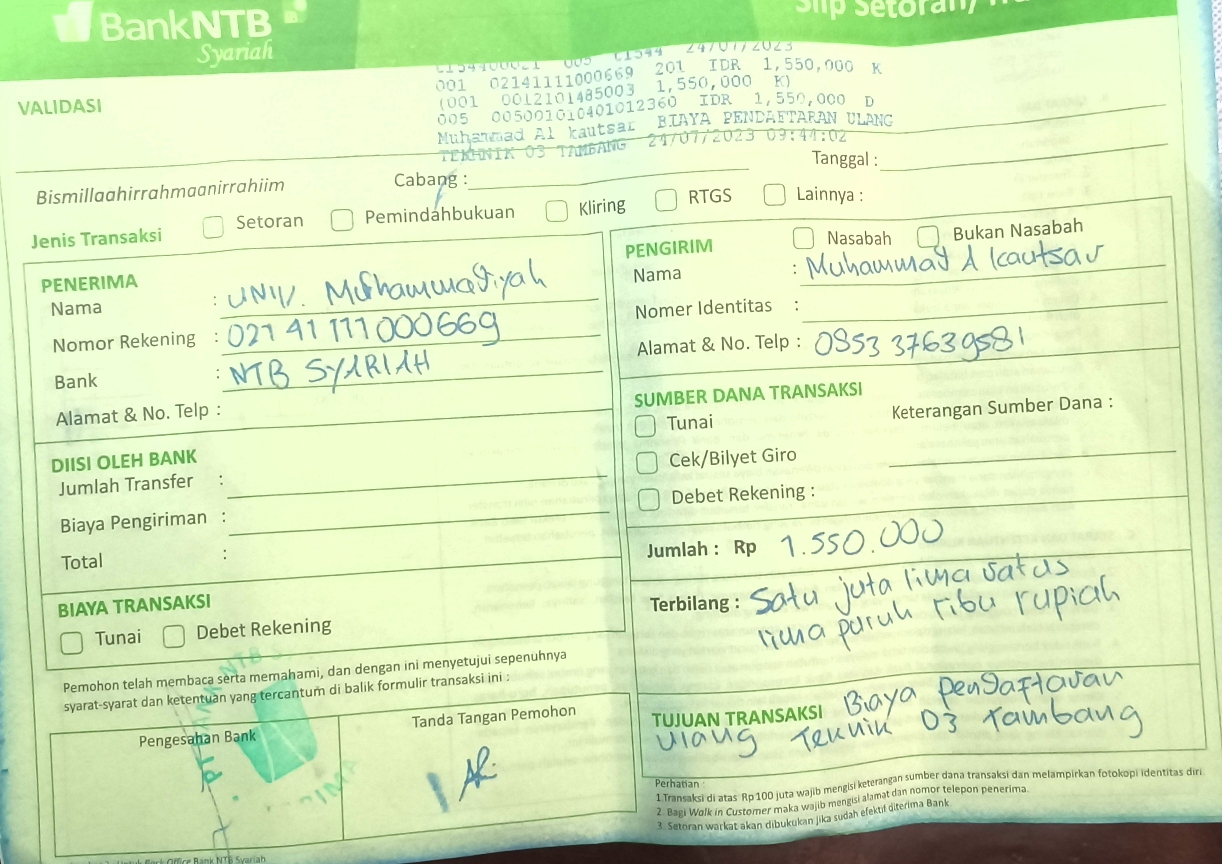 BankNTB
Syariah
Slip Setoran/
VALIDASI
24/07/2023
001 02141111000669 201 IDR 1,550,000 K
(001 0012101485003 1,550,000 K)
005 005001010401012360 IDR 1,550,000 D
Muhammad Al kautsar BIAYA PENDAFTARAN ULANG
TEKHNIK 03 TAMBANG 24/07/2023 09:44:02
Bismillaahirrahmaanirrahiim
Cabang :
Tanggal :
Jenis Transaksi Setoran Pemindahbukuan Kliring RTGS Lainnya :
PENERIMA
Nama : UNIV. Muhammadiyah
Nomor Rekening : 02141111000669
Bank : NTB SYARIAH
Alamat & No. Telp :
DIISI OLEH BANK
Jumlah Transfer :
Biaya Pengiriman :
Total :
BIAYA TRANSAKSI
Tunai Debet Rekening
Pemohon telah membaca serta memahami, dan dengan ini menyetujui sepenuhnya
syarat-syarat dan ketentuan yang tercantum di balik formulir transaksi ini :
Pengesahan Bank
Tanda Tangan Pemohon
PENGIRIM Nasabah Bukan Nasabah
Nama : Muhammad A kautsar
Nomer Identitas :
Alamat & No. Telp : 085337639581
SUMBER DANA TRANSAKSI
Tunai
Keterangan Sumber Dana :
Cek/Bilyet Giro
Debet Rekening :
Jumlah : Rp 1.550.000
Terbilang : Satu juta lima ratus
lima puluh ribu rupiah
TUJUAN TRANSAKSI Biaya pendaftaran
ulang Teknik 03 Tambang
Perhatian :
1.Transaksi di atas Rp100 juta wajib mengisi keterangan sumber dana transaksi dan melampirkan fotokopi identitas diri
2. Bagi Walk in Customer maka wajib mengisi alamat dan nomor telepon penerima.
3. Setoran warkat akan dibukukan jika sudah efektif diterima Bank
Office Bank NTB Syariah